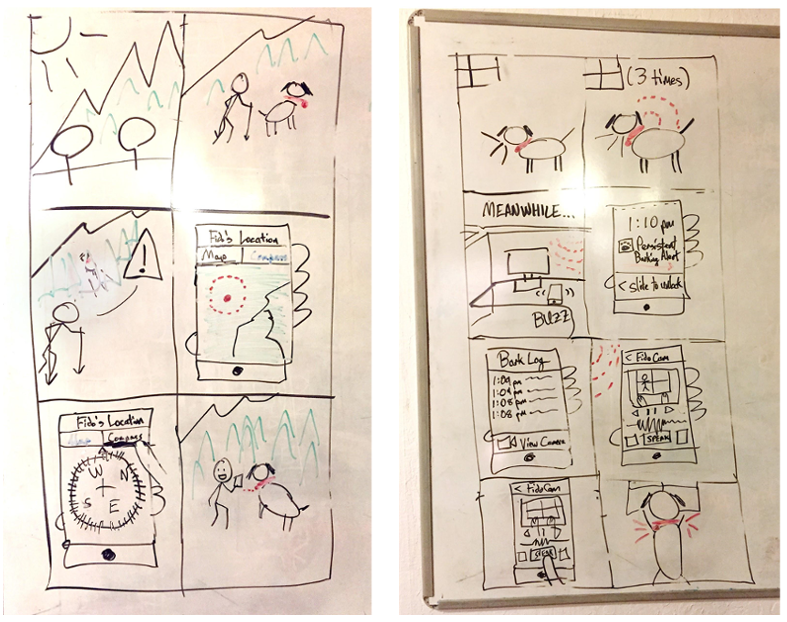 !
Fido's Location
Map Compass
Fido's Location
Map Compass
W N
S E
(3 times)
MEANWHILE...
BUZZ
1:10 pm
Persistent
Barking Alert
< slide to unlock
Bark Log
1:09 pm
1:09 pm
1:08 pm
1:08 pm
View Camera
< Fido Cam
SPEAK
< Fido Cam
SPEAK